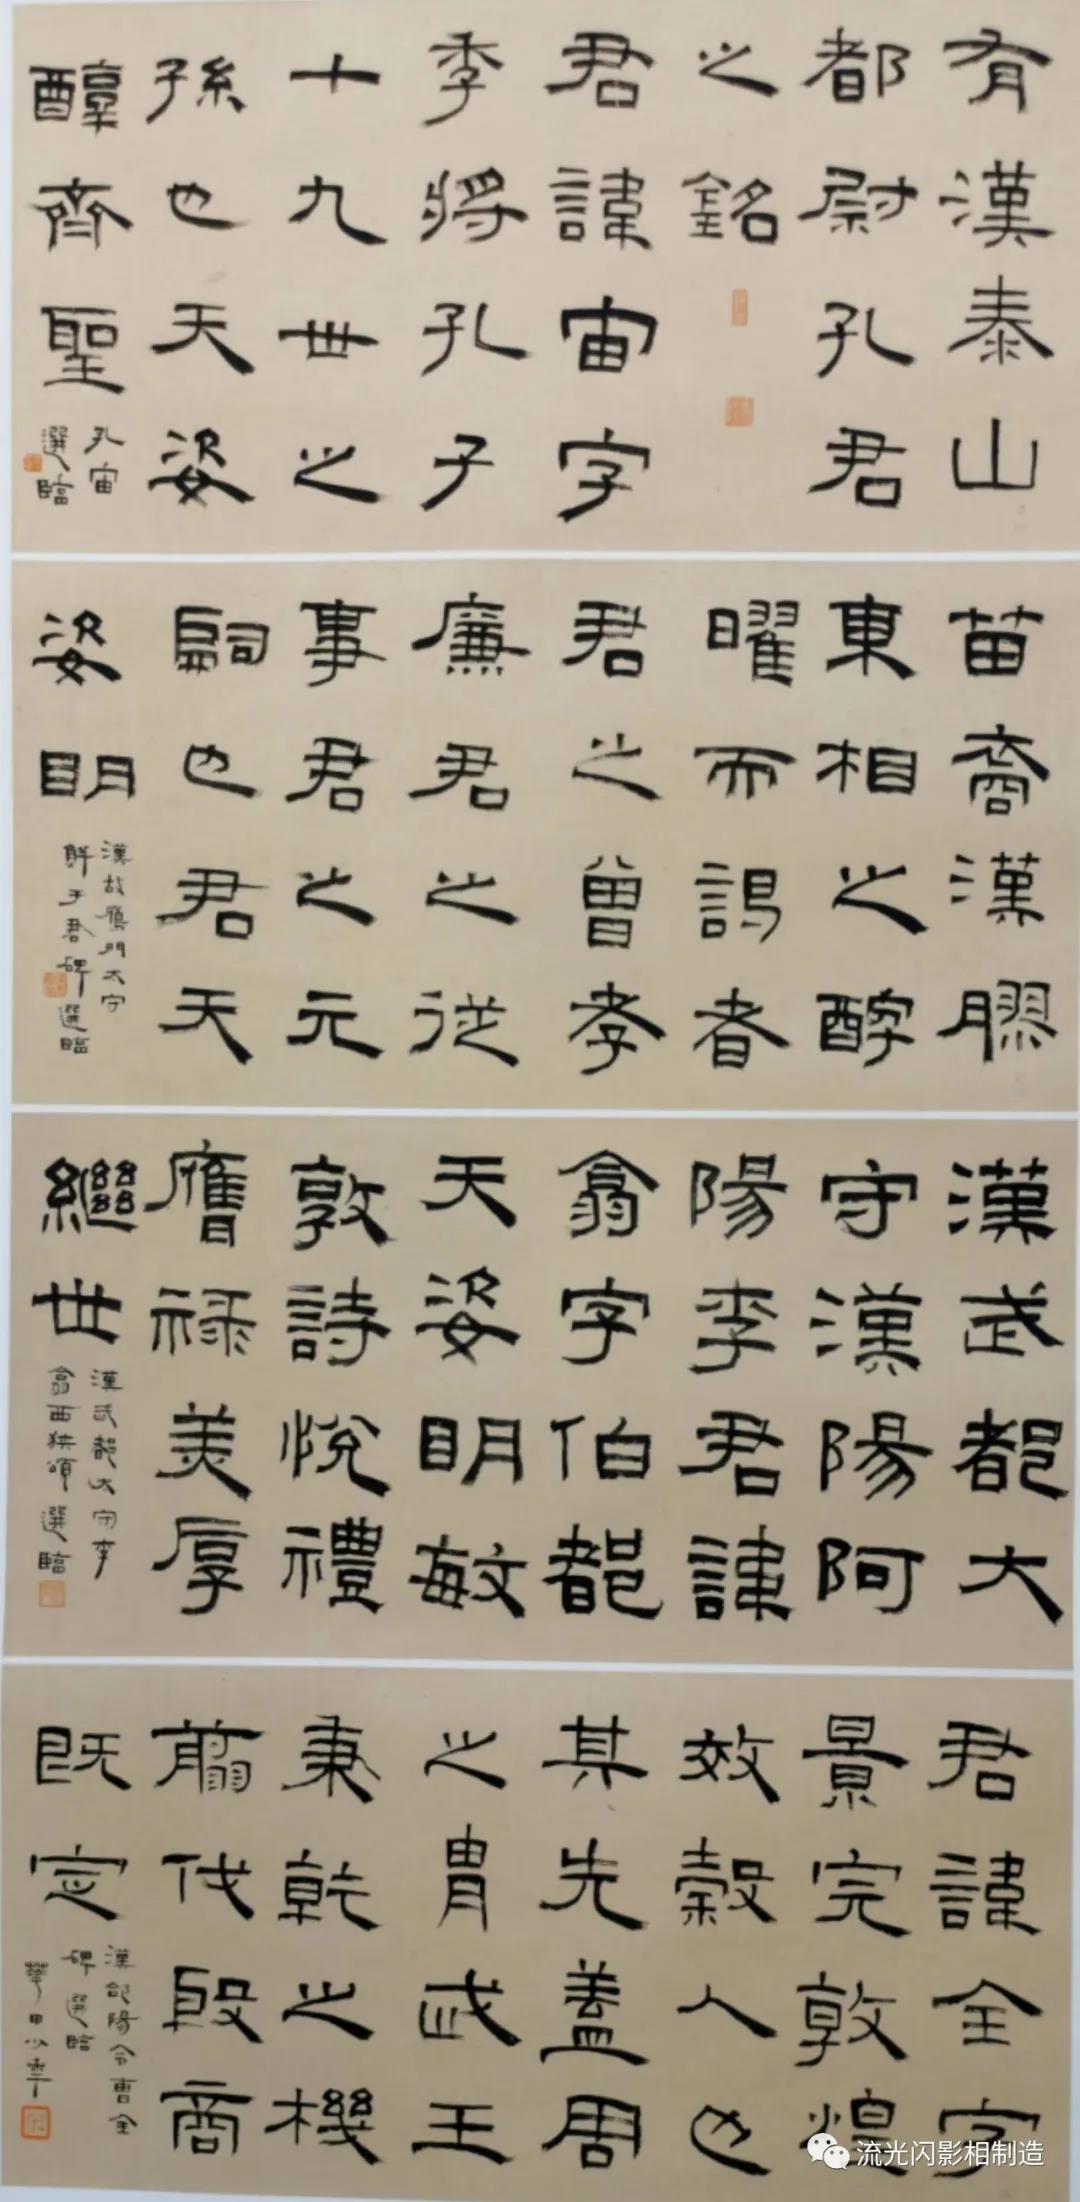 有漢泰山
都尉孔君
之銘
君諱宙字
季將孔子
十九世之
孫也天姿
醇齊聖
孔宙
選臨
苗裔漢膠
東相之醇
曜而謁者
君之曾孝
廉君之從
事君之元
嗣也君天
姿明
漢故雁門太守
鮮于君碑選臨
漢武都大
守漢陽阿
陽李君諱
翕字伯都
天姿明敏
敦詩悅禮
膺祿美厚
繼世
漢武都太守李
翕西狹頌選臨
君諱全字
景完敦煌
效穀人也
其先蓋周
之冑武王
秉乾之機
翦伐殷商
既定
漢郃陽令曹全
碑選臨
流光闪影相制造